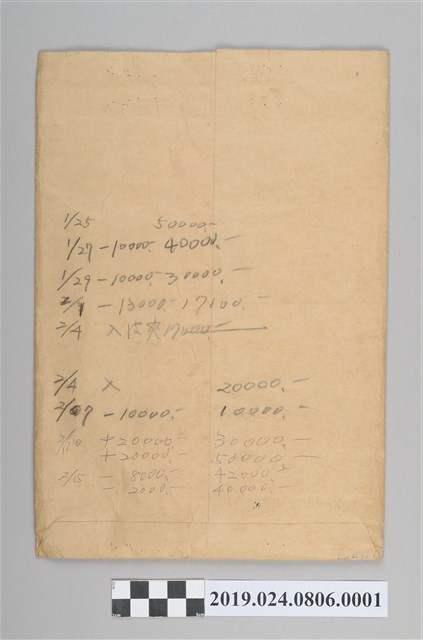 1/25 50000.-
1/27 - 10000.- 40000.-
1/29 - 10000.- 30000.-
2/1 - 13000.- 17000.-
2/4 入 17000.-
2/4 入 20000.-
2/07 - 10000.- 10000.-
2/10 + 20000.- 30000.-
+ 20000.- 50000.-
2/15 - 8000.- 42000.-
- 2000.- 40000.-
2019.024.0806.0001